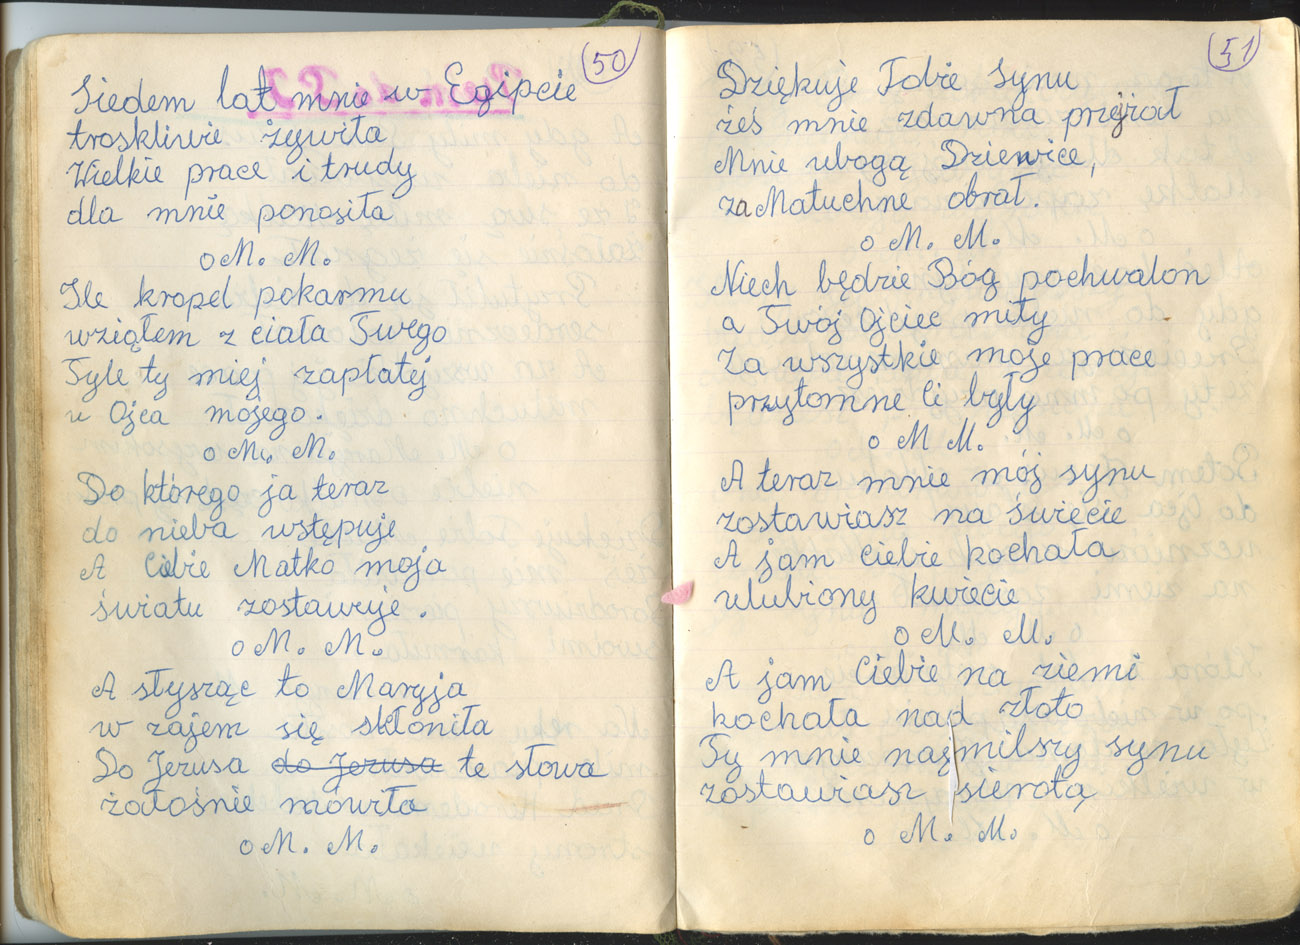 50
Siedem lat mnie w Egipcie
troskliwie żywiła
Wielkie prace i trudy
dla mnie ponosiła
o M. M.
Ile kropel pokarmu
wziąłem z ciała Twego
Tyle ty miej zapłatej
u Ojca mojego.
o M. M.
Do którego ja teraz
do nieba wstępuje
A Ciebie Matko moja
światu zostawuje.
o M. M.
A słysząc to Maryja
w zajem się skłoniła
Do Jezusa do Jezusa te słowa
żałośnie mówiła
o M. M.
51
Dziękuje Tobie Synu
żeś mnie zdawna przejrzał
Mnie ubogą Dziewice,
za Matuchne obrał.
o M. M.
Niech będzie Bóg pochwalon
a Twój Ojciec miły
Za wszystkie moje prace
przytomne Ci były
o M M.
A teraz mnie mój synu
zostawiasz na świecie
A jam ciebie kochała
ulubiony kwiecie
o M. M.
A jam Ciebie na ziemi
kochała nad złoto
Ty mnie najmilszy synu
zostawiasz sierotą
o M. M.